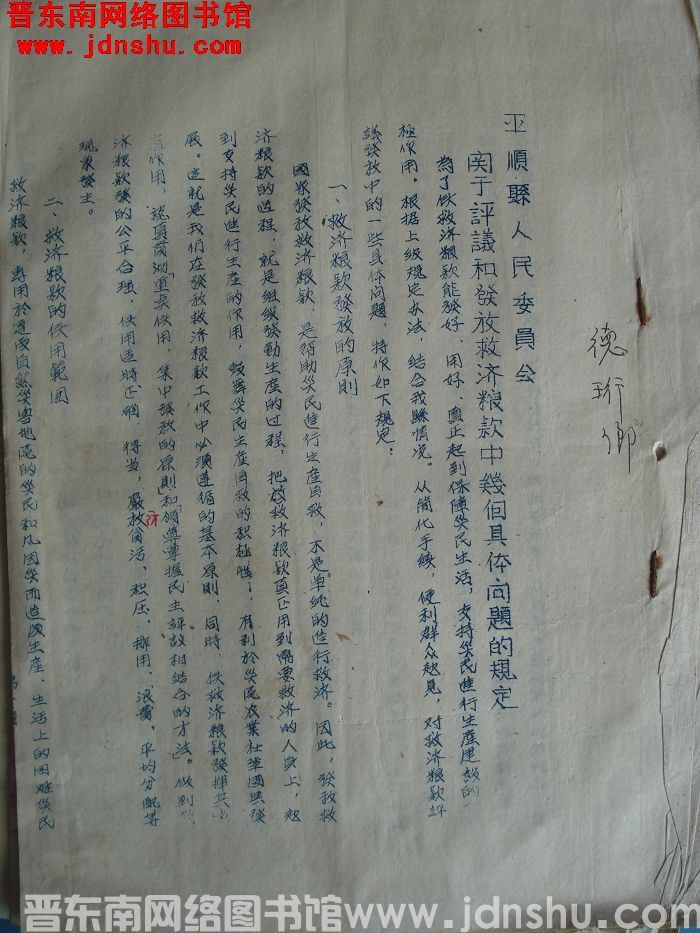 晋东南网络图书馆
www.jdnshu.com
德珩鄉
平順縣人民委員会
関于評議和發放救济粮款中幾個具体问題的規定
為了使救济粮款能發好、用好、真正起到保障災民生活，支持災民進行生產建設的
極作用。根据上級規定办法，結合我縣情况。从簡化手续，便利群众起見，对救济粮款評
議發放中的一些具体问題，特作如下規定：
一、救济粮款發放的原則
國家發放救济粮款，是帮助災民進行生產自救，不是單純的進行救济。因此，發放救
济粮款的过程，就是组織發動生產的过程，把救济粮款真正用到需要救济的人身上，起
到支持災民進行生產的作用，鼓舞災民生產自救的积極性，有利於災民農业社鞏固與發
展。这就是我们在發放救济粮款工作中必须遵循的基本原則，同時，使救济粮款發揮其
有作用，認真貫彻「重点使用，集中發放的原則」和「領導掌握民主評議相結合的方法」。做到
济粮款發的公平合理，使用适時正确、得当，嚴防貪污、积压、挪用、浪費、平均分配等
現象發生。
二、救济粮款的使用範围
救济粮款，專用於遭受自然災害地區的災民和凡因災而造成生產、生活上的困难災民
晋东南网络图书馆www.jdnshu.com